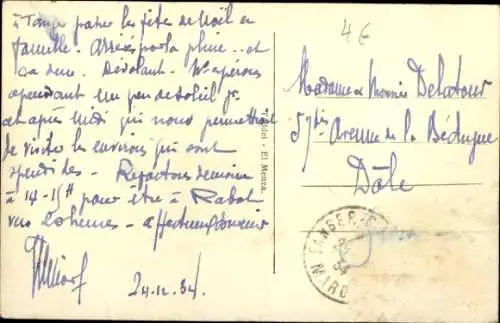 à Tanger passer les fêtes de Noël en
famille. Arrivés par la pluie.. et
ça dure. Désolant. N. espérons
cependant un peu de soleil pr
cet après midi qui nous permettrait
de visiter les environs qui sont
splendides - Repartons demain
à 14-15H pour être à Rabat
vers 20 heures - affectueusement
24.12.34
El Menza.
4€
Madame et Monsieur Delatour
57bis Avenue de la Bédugue
Dôle
TANGER
34